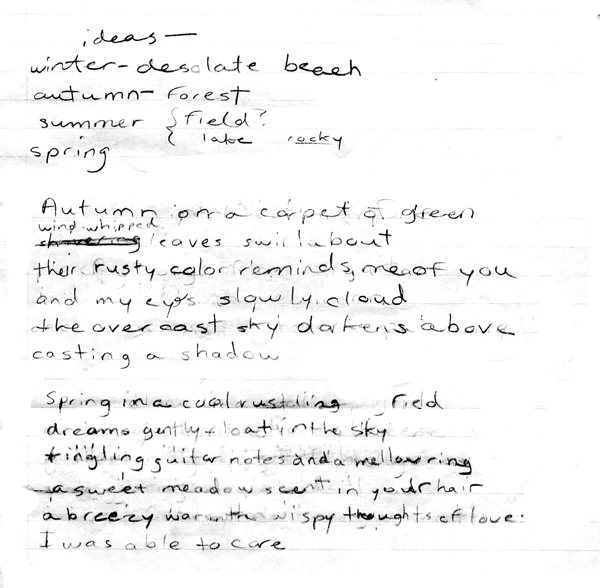 ideas—
winter- desolate beach
autumn- forest
summer { field?
{ lake rocky
spring
Autumn on a carpet of green
wind-whipped
shivering leaves swirl about
their rusty color reminds me of you
and my eyes slowly cloud
the overcast sky darkens above
casting a shadow
Spring in a cool rustling field
dreams gently float in the sky
tingling guitar notes and a mellow ring
a sweet meadow scent in your hair
a breezy warmth wispy thoughts of love:
I was able to care